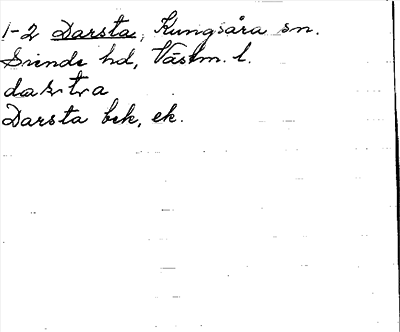 1-2 Darsta, Kungsåra sn.
Siende hd, Västm. l.
Darsta bek, ek.